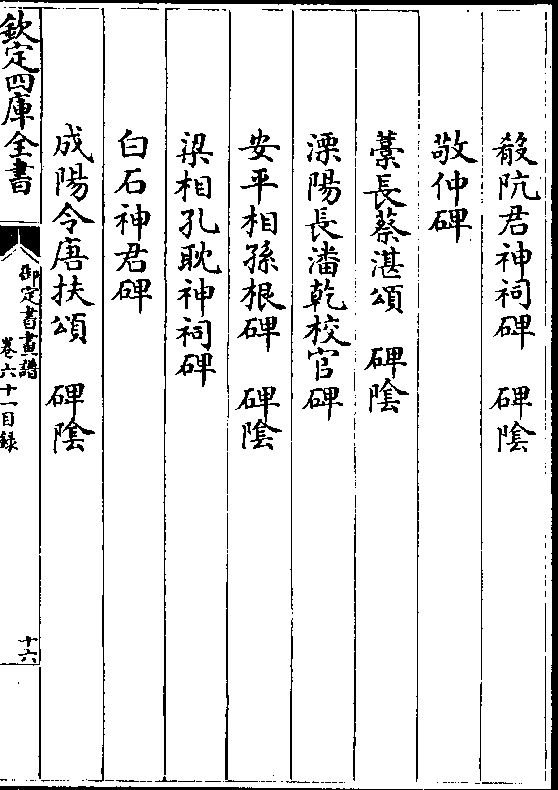 殽阬君神祠碑　碑陰
敬仲碑
藁長蔡湛頌　碑陰
溧陽長潘乾校官碑
安平相孫根碑　碑陰
梁相孔耽神祠碑
白石神君碑
成陽令唐扶頌　碑陰
欽定四庫全書
御定書畫譜
卷六十一目録
十六